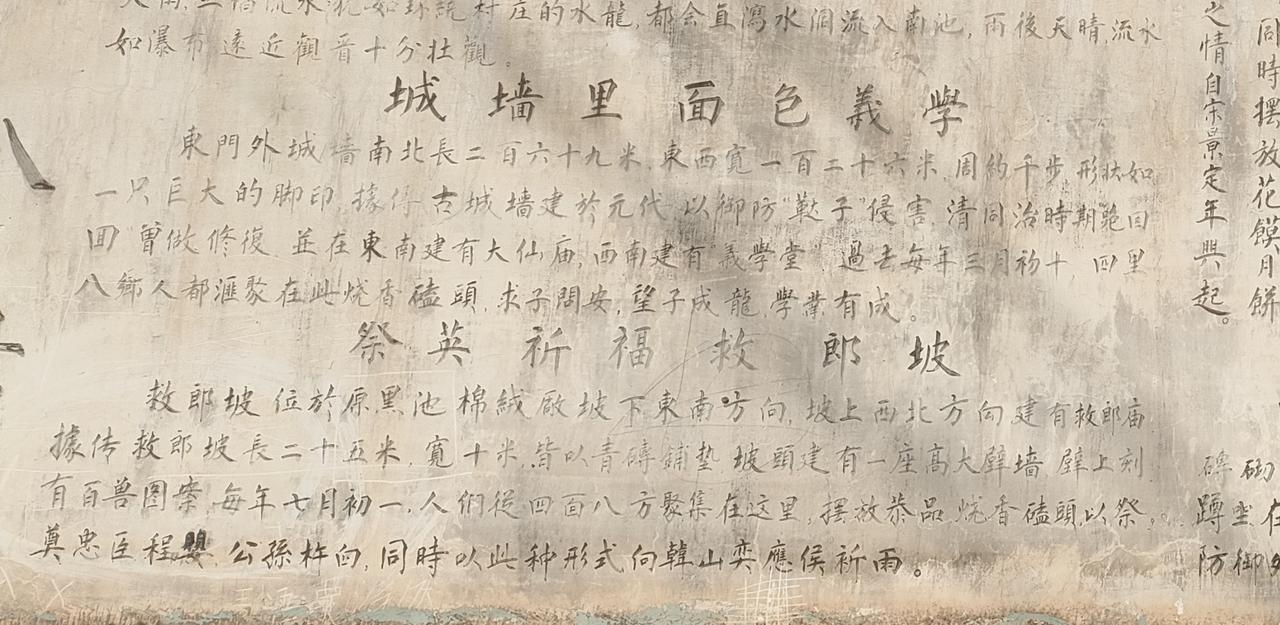 如瀑布遠近觀晋十分壯觀。
城墻里面色義學
東門外城墻南北長二百六十九米,東西寬一百二十六米,周約千步,形狀如
一只巨大的脚印,據传古城墻建於元代,以御防"鞑子"侵害,清同治時期跪回
回曾做修復,並在東南建有大仙庙,西南建有"義學堂",過去每年三月初十,四里
八鄉人都滙聚在此烧香磕頭,求子問安,望子成龍,學業有成。
祭英祈福救郎坡
救郎坡位於原黑池棉絨厰坡下東南方向,坡上西北方向建有救郎庙
據传救郎坡長二十五米,寬十米,皆以青磚鋪垫,坡頭建有一座高大壁墻,壁上刻
有百兽图案,每年七月初一,人們從四面八方聚集在这里,摆放恭品,烧香磕頭,以祭
奠忠臣程嬰,公孫杵臼,同時以此种形式向韓山奕應侯祈雨。
之情自宗景定年興起。
同時摆放花饃月餅
碑砌
蹲坐在
防御